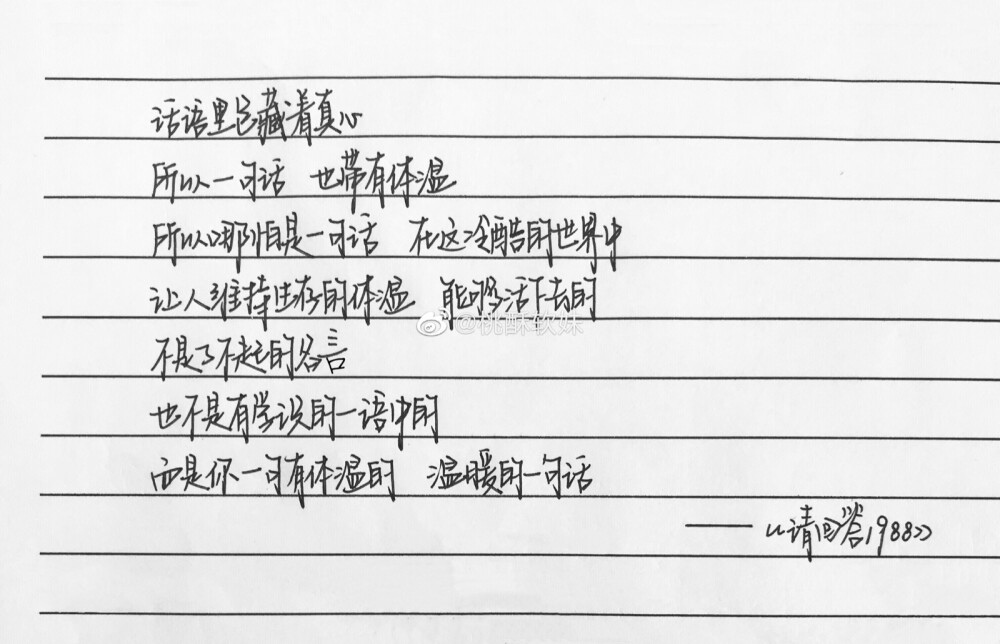 话语里包藏着真心
所以一句话 也带有体温
所以哪怕是一句话 在这冷酷的世界中
让人维持生存的体温 能够活下去的
@桃酥软妹
不是了不起的名言
也不是有学说的一语中的
而是你一句有体温的 温暖的一句话
——《请回答1988》